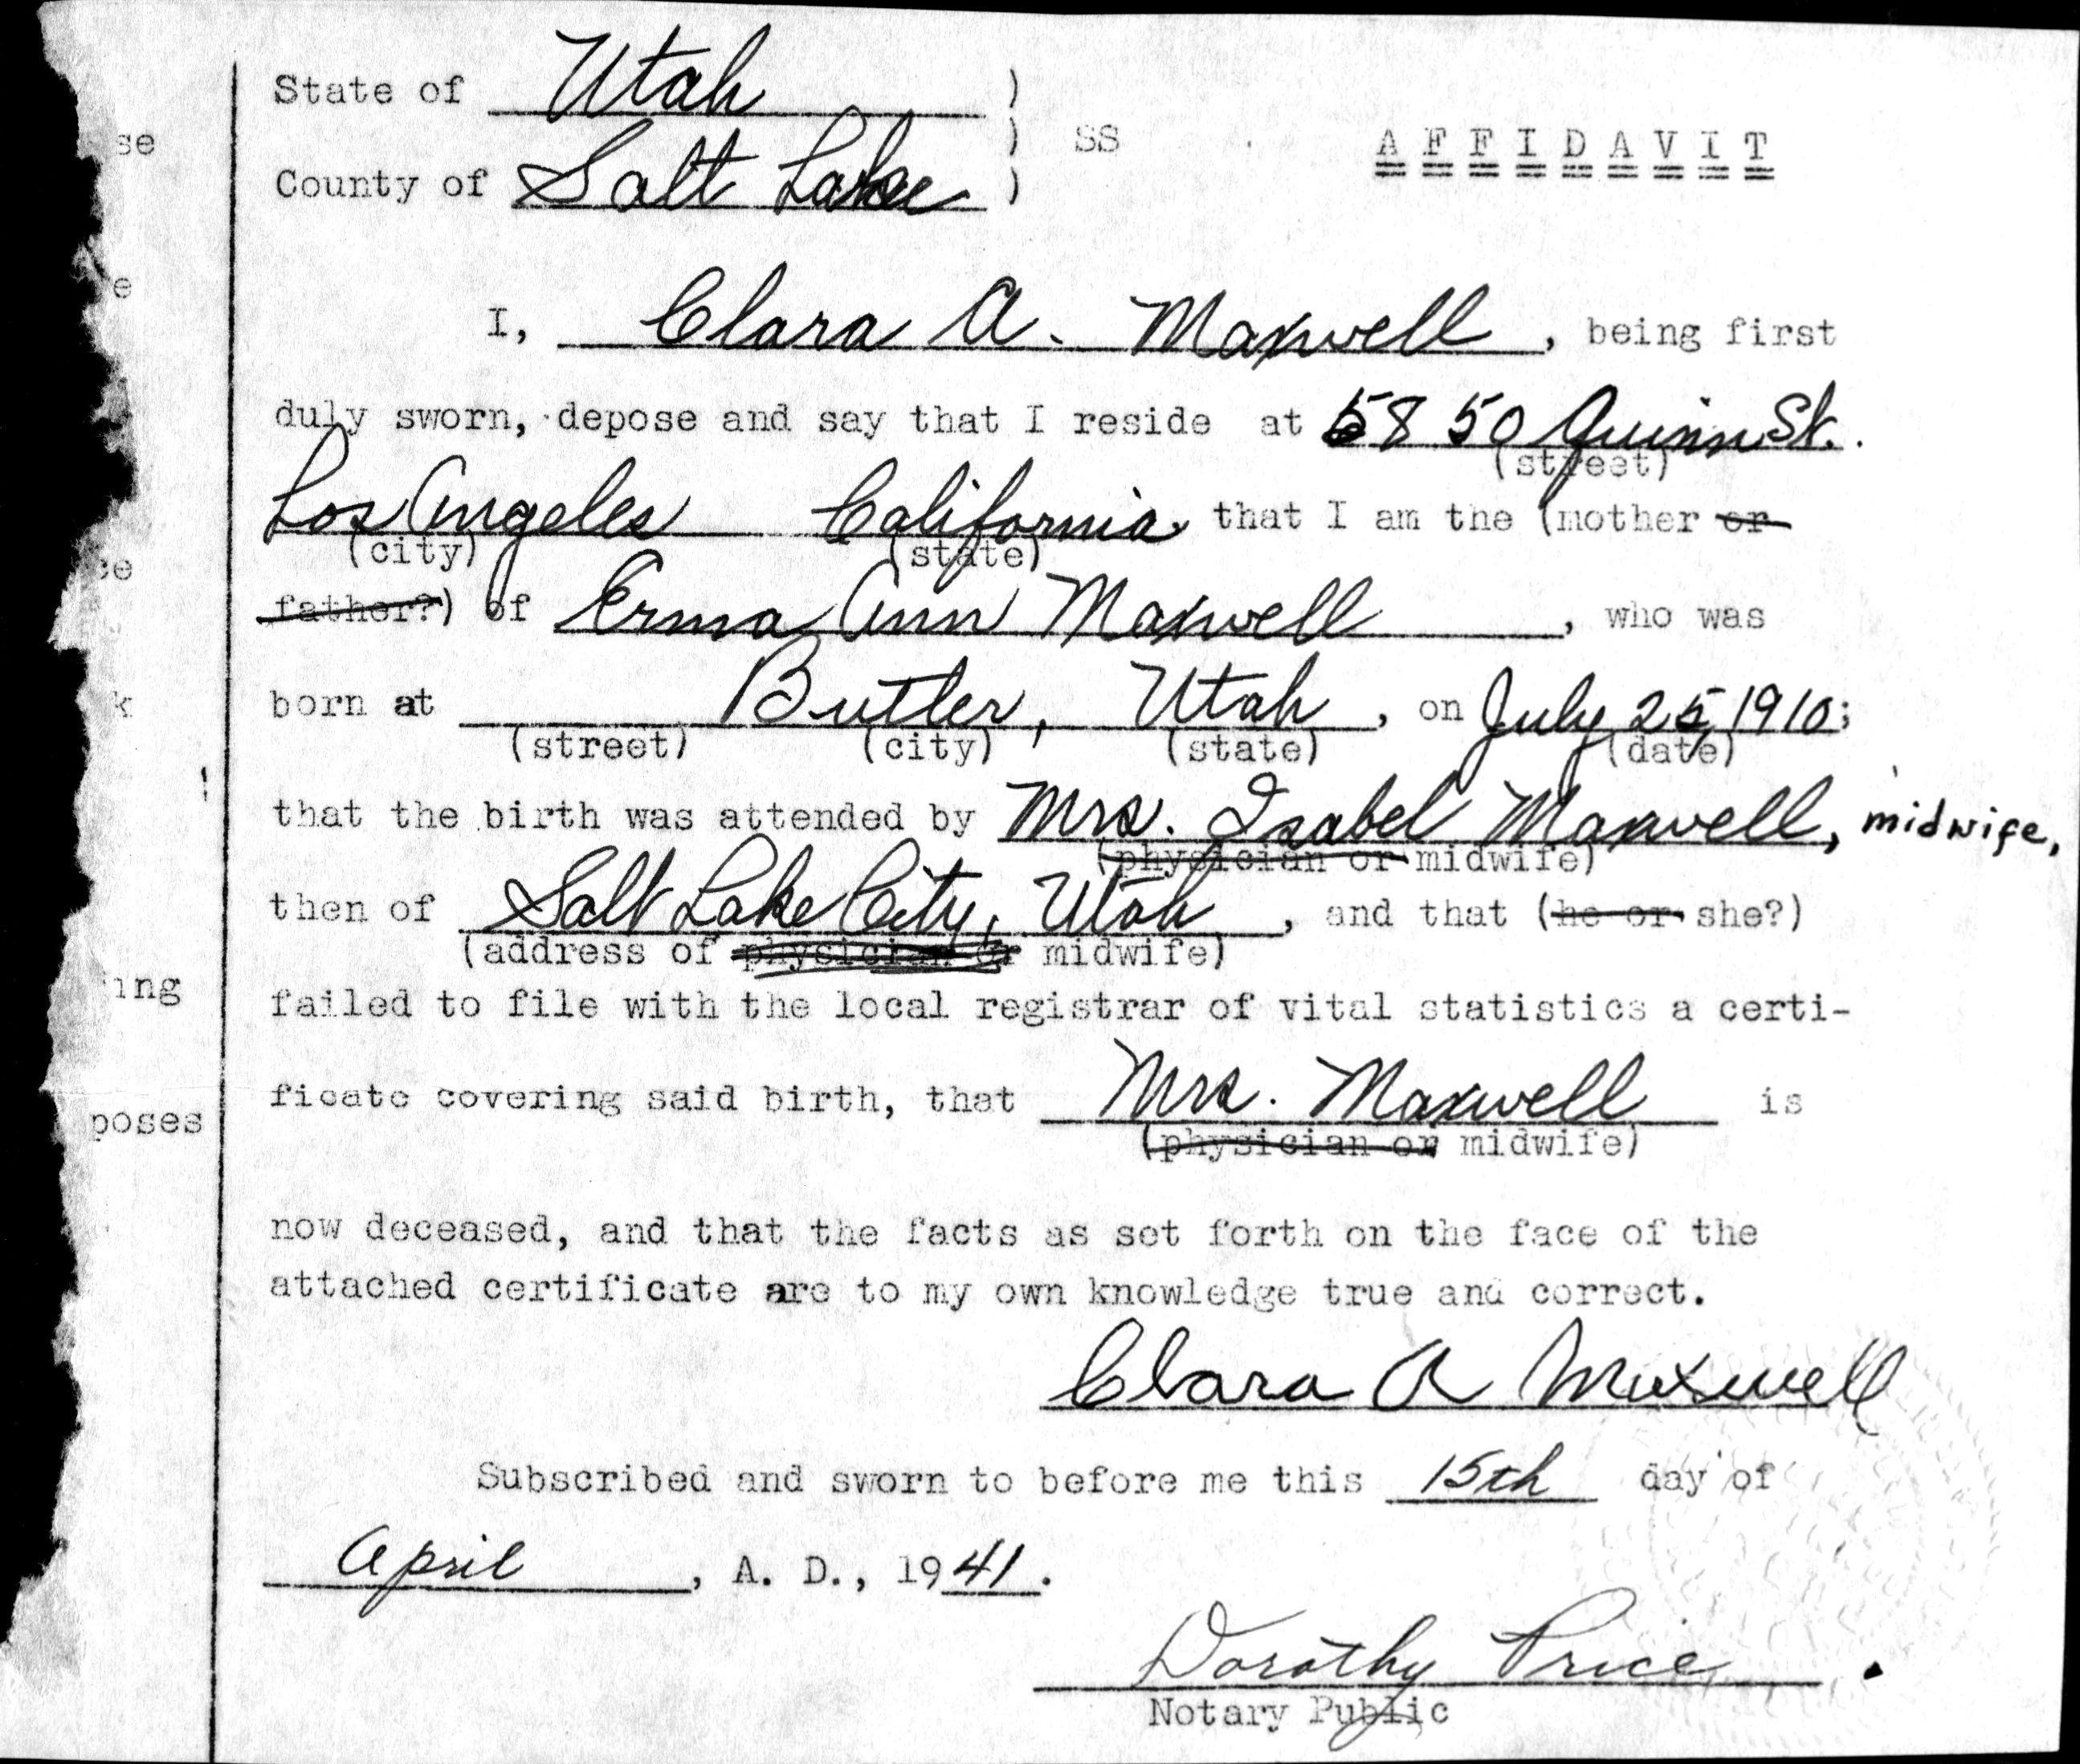 State of Utah )
) SS AFFIDAVIT
County of Salt Lake )
se
e
I, Clara A. Maxwell, being first
duly sworn, depose and say that I reside at 5850 Quinn St.
(street)
Los Angeles California that I am the (mother or
(city) (state)
ce
father?) of Erma Ann Maxwell, who was
k
born at Butler, Utah, on July 25, 1910;
(street) (city) (state) (date)
that the birth was attended by Mrs. Isabel Maxwell, midwife,
(physician or midwife)
then of Salt Lake City, Utah, and that (he or she?)
(address of physician or midwife)
ing
failed to file with the local registrar of vital statistics a certi-
ficate covering said birth, that Mrs. Maxwell is
poses
(physician or midwife)
now deceased, and that the facts as set forth on the face of the
attached certificate are to my own knowledge true and correct.
Clara A Maxwell
Subscribed and sworn to before me this 15th day of
April, A. D., 1941.
Dorothy Price
Notary Public